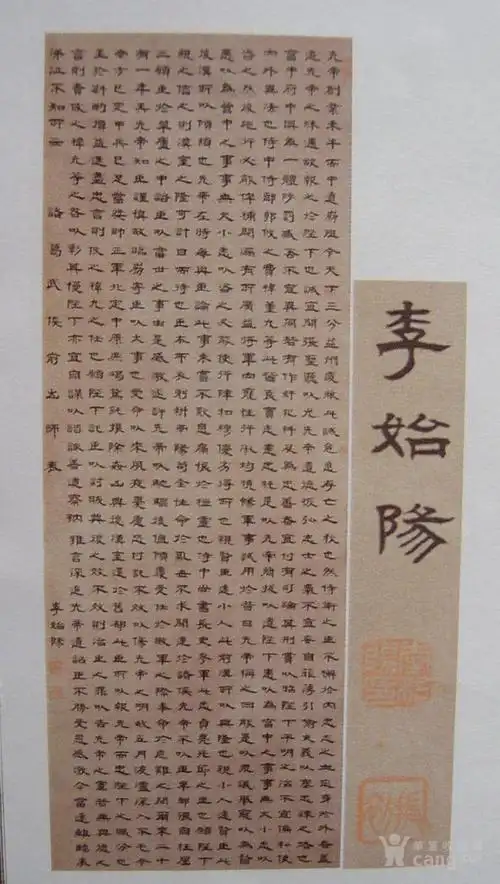 先帝創業未半而中道崩殂今天下三分益州疲敝此誠危急存亡之秋也然侍衛之臣不懈於內忠志之士忘身於外者蓋
追先帝之殊遇欲報之於陛下也誠宜開張聖聽以光先帝遺德恢弘志士之氣不宜妄自菲薄引喻失義以塞忠諫之路也
宮中府中俱為一體陟罰臧否不宜異同若有作奸犯科及為忠善者宜付有司論其刑賞以昭陛下平明之治不宜偏私使
內外異法也侍中侍郎郭攸之費禕董允等此皆良實志慮忠純是以先帝簡拔以遺陛下愚以為宮中之事事無大小悉以
咨之然後施行必能裨補闕漏有所廣益將軍向寵性行淑均曉暢軍事試用於昔日先帝稱之曰能是以眾議舉寵以為督
愚以為營中之事事無大小悉以咨之必能使行陣和穆優劣得所也親賢臣遠小人此前漢所以興隆也親小人遠賢臣此
後漢所以傾頹也先帝在時每與臣論此事未嘗不歎息痛恨於桓靈也侍中尚書長史參軍此悉貞亮死節之臣也願陛下
親之信之則漢室之隆可計日而待也臣本布衣躬耕南陽苟全性命於亂世不求聞達於諸侯先帝不以臣卑鄙猥自枉屈
三顧臣於草廬之中諮臣以當世之事由是感激遂許先帝以驅馳後值傾覆受任於敗軍之際奉命於危難之間爾來二十
有一年矣先帝知臣謹慎故臨崩寄臣以大事也受命以來夙夜憂慮恐付託不效以傷先帝之明故五月渡瀘深入不毛今
南方已定甲兵已足當獎帥三軍北定中原庶竭駑鈍攘除姦凶興復漢室還於舊都此臣所以報先帝而忠陛下之職分也
至於斟酌損益進盡忠言則攸之禕允之任也願陛下託臣以討賊興復之效不效則治臣之罪以告先帝之靈若無興德之
言則責攸之禕允等之咎以彰其慢陛下亦宜自謀以諮諏善道察納雅言深追先帝遺詔臣不勝受恩感激今當遠離臨表
涕泣不知所云 諸葛武侯前出師表 李始陽
李始陽